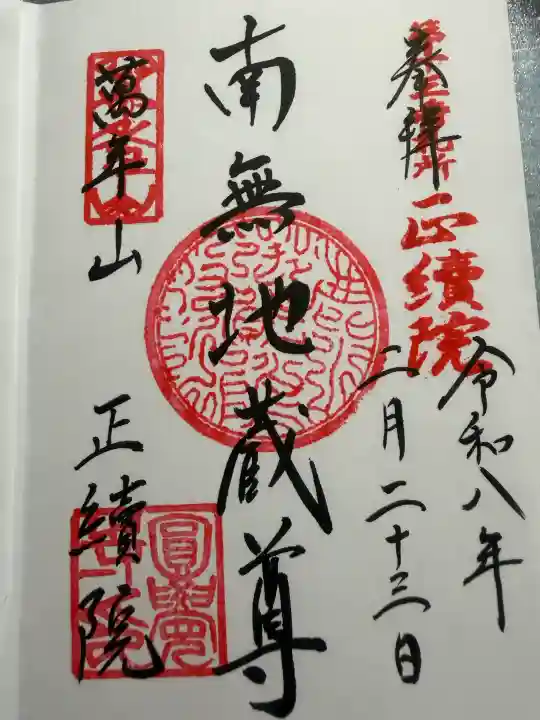 奉拝
正續院
令和八年
二月二十三日
南無地蔵尊
萬年山
正續院
圓覺